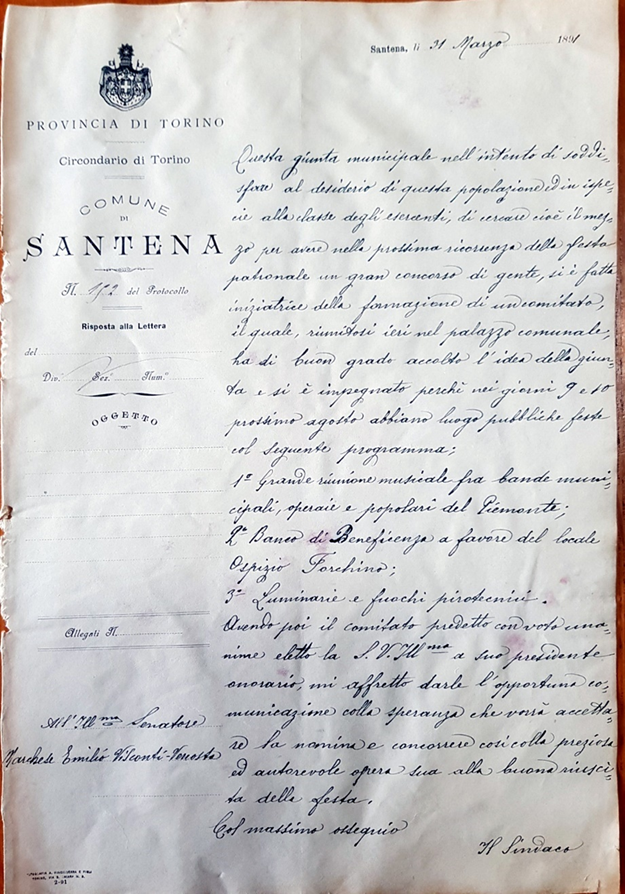 Santena, li 31 Marzo 1891
PROVINCIA DI TORINO
Circondario di Torino
COMUNE
DI
SANTENA
N. 152 del Protocollo
Risposta alla Lettera
del
Div. Sez. Num.
OGGETTO
Allegati N.
All'Ill.mo Senatore
Marchese Emilio Visconti-Venosta
Questa giunta municipale nell'intento di soddi-
sfare al desiderio di questa popolazione ed in ispe-
cie alla classe degli esercenti, di cercare cioè il mez-
zo per avere nella prossima ricorrenza della festa
patronale un gran concorso di gente, si è fatta
iniziatrice della formazione di un comitato,
il quale, riunitosi ieri nel palazzo comunale,
ha di buon grado accolto l'idea della giun-
ta e si è impegnato perchè nei giorni 9 e 10
prossimo agosto abbiano luogo pubbliche feste
col seguente programma;
1º Grande riunione musicale fra bande muni-
cipali, operaie e popolari del Piemonte;
2º Banco di Beneficenza a favore del locale
Ospizio Forchino;
3º Luminarie e fuochi pirotecnici.
Avendo poi il comitato predetto con voto una-
nime eletto la S. V. Ill.ma a suo presidente
onorario, mi affretto darle l'opportuna co-
municazione colla speranza che vorrà accetta-
re la nomina e concorrere così colla preziosa
ed autorevole opera sua alla buona riusci-
ta della festa.
Col massimo ossequio
Il Sindaco
2-91